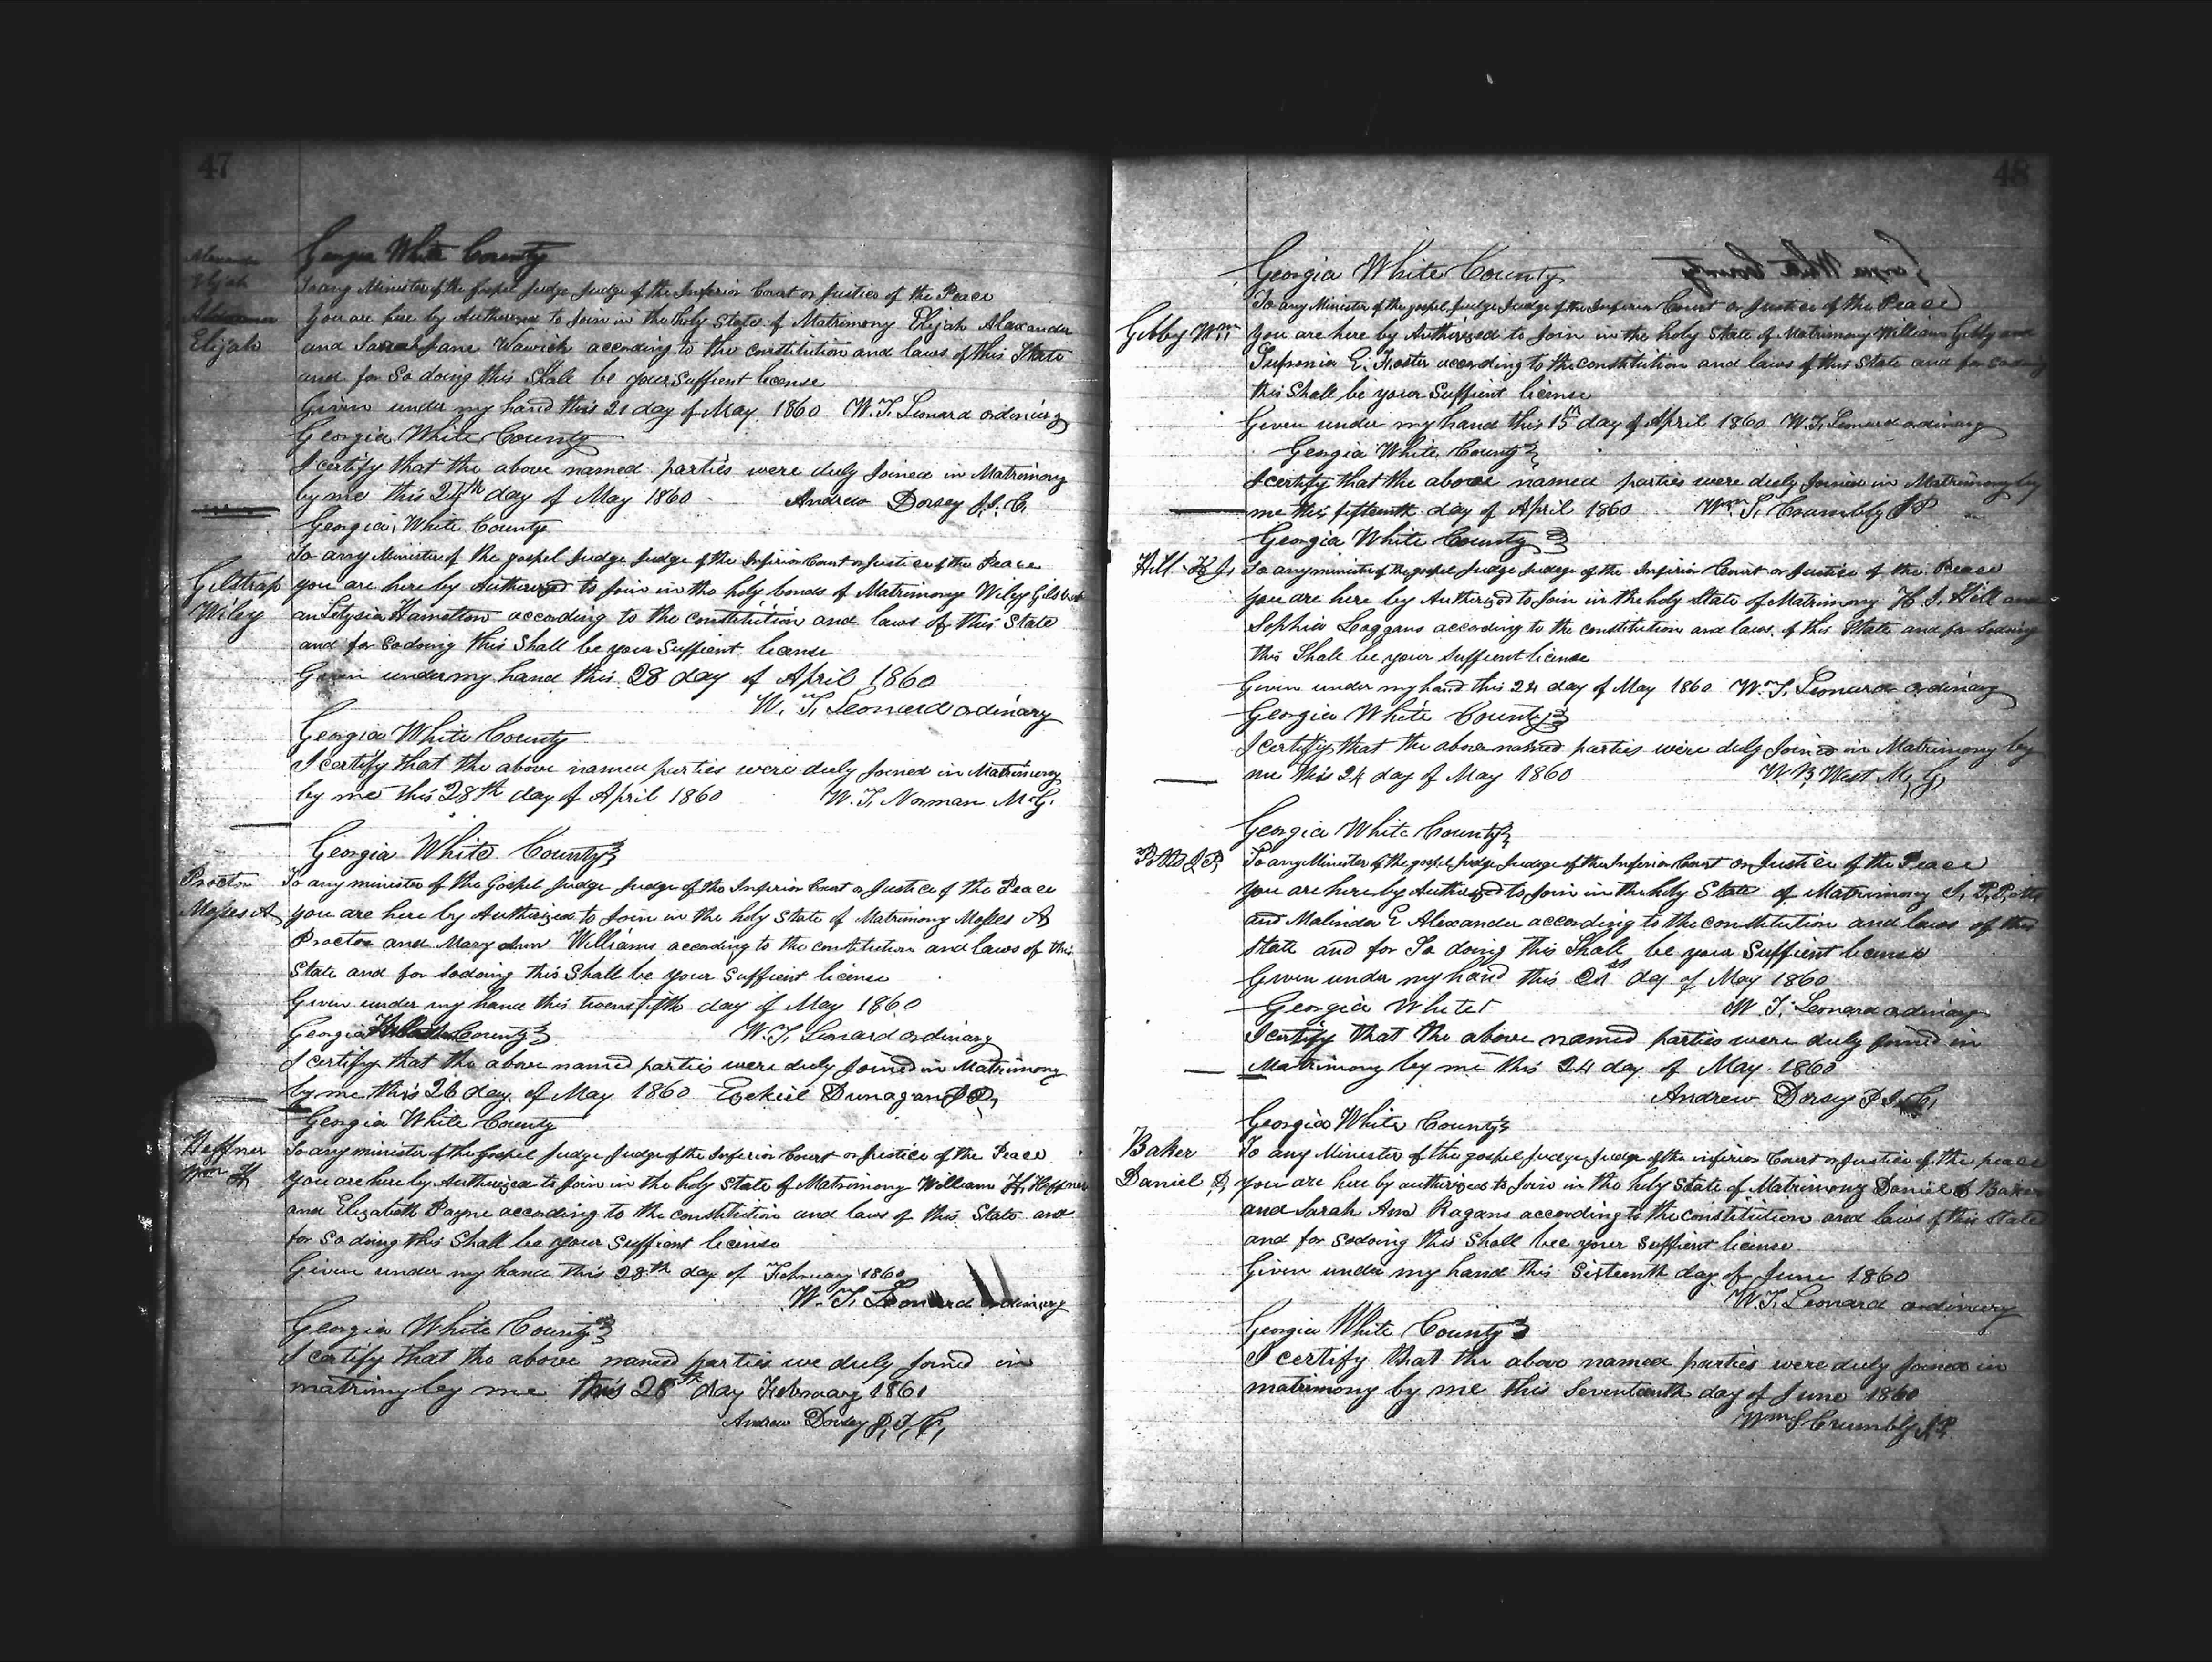 47
Georgia White County
Elijah
To any Minister of the Gospel Judge Judge of the Inferior Court or Justice of the Peace
You are here by Authorized to Join in the holy State of Matrimony Elijah Alexander
Elijah
and Sarah Jane Wawick according to the constitution and laws of this State
and for So doing this Shall be your Suffient license
Given under my hand this 21 day of May 1860 W. T. Leonard ordinary
Georgia White County
I certify that the above named parties were duly Joined in Matrimony
by me this 24th day of May 1860 Andrew Dorsey J. I. C.
Georgia White County
To any Minister of the gospel Judge Judge of the Inferior Court or Justice of the Peace
Gilstrap
you are here by Authorized to Join in the holy bonds of Matrimony Wiley Gilstrap
Wiley
an Hamelton according to the constitution and laws of this State
and for So doing this Shall be your Suffient license
Given under my hand this 28 day of April 1860
W. T. Leonard ordinary
Georgia White County
I certify that the above named parties were duly Joined in Matrimony
by me this 28th day of April 1860 W. T. Norman M. G.
Georgia White County
Procter
To any minister of the Gospel Judge Judge of the Inferior Court or Justice of the Peace
Mosses A
you are here by Authorized to Join in the holy State of Matrimony Mosses A
Procter and Mary Ann Williams according to the constitution and laws of this
State and for So doing this Shall be your Suffient license
Given under my hand this twentfifth day of May 1860
Georgia County W. T. Leonard ordinary
I certify that the above named parties were duly Joined in Matrimony
by me this 26 day of May 1860 Ezekiel Dunagan J P,
Georgia White County
Heffner
To any minister of the Gospel Judge Judge of the Inferior Court or Justice of the Peace
Wm H
you are here by Authorized to Join in the holy State of Matrimony William H. Heffner
and Elizabeth Payne according to the constitution and laws of this State and
for So doing this Shall be your Suffient license
Given under my hand this 28th day of February 1860
W. T. Leonard ordinary
Georgia White County
I certify that the above named parties we duly Joined in
matrimy by me this 28th day February 1861
Andrew Dorsey J, I, C,
48
Georgia White County
To any Minister of the gospel Judge Judge of the Inferior Court or Justice of the Peace
Gibby Wm
You are here by Authorized to Join in the holy State of Matrimony William Gibby and
E. Foster according to the constitution and laws of this State and for So doing
this Shall be your Suffient license
Given under my hand this 15th day of April 1860 W. T. Leonard ordinary
Georgia White County
I certify that the above named parties were duly Joined in Matrimony by
me this fifteenth day of April 1860 Wm S. Crumbly J P
Georgia White County
Hill H. J.
To any minister of the gospel Judge Judge of the Inferior Court or Justice of the Peace
you are here by Authorized to Join in the holy State of Matrimony H. J. Hill and
Sophia Loggans according to the constitution and laws of this State and for So doing
this Shall be your Suffient license
Given under my hand this 24 day of May 1860 W. T. Leonard ordinary
Georgia White County
I certify that the above named parties were duly Joined in Matrimony by
me this 24 day of May 1860 W. B. West M. G.
Georgia White County
To any Minister of the gospel Judge Judge of the Inferior Court or Justice of the Peace
You are here by Authorized to Join in the holy State of Matrimony
and Malinda E Alexander according to the constitution and laws of this
State and for So doing this Shall be your Suffient license
Given under my hand this 21st day of May 1860
Georgia White W. T. Leonard ordinary
I certify that the above named parties were duly Joined in
Matrimony by me this 24 day of May 1860
Andrew Dorsey
Georgia White County
Baker
To any Minister of the gospel Judge Judge of the inferior Court or Justice of the peace
Daniel
you are here by authorized to Join in the holy State of Matrimony Daniel Baker
and Sarah Ann Ragans according to the constitution and laws of this State
and for So doing this Shall bee your Suffient license
Given under my hand this Sixteenth day of June 1860
W. T. Leonard ordinary
Georgia White County
I certify that the above named parties were duly Joined in
matrimony by me this Seventeenth day of June 1860
Wm S Crumbly J. P.